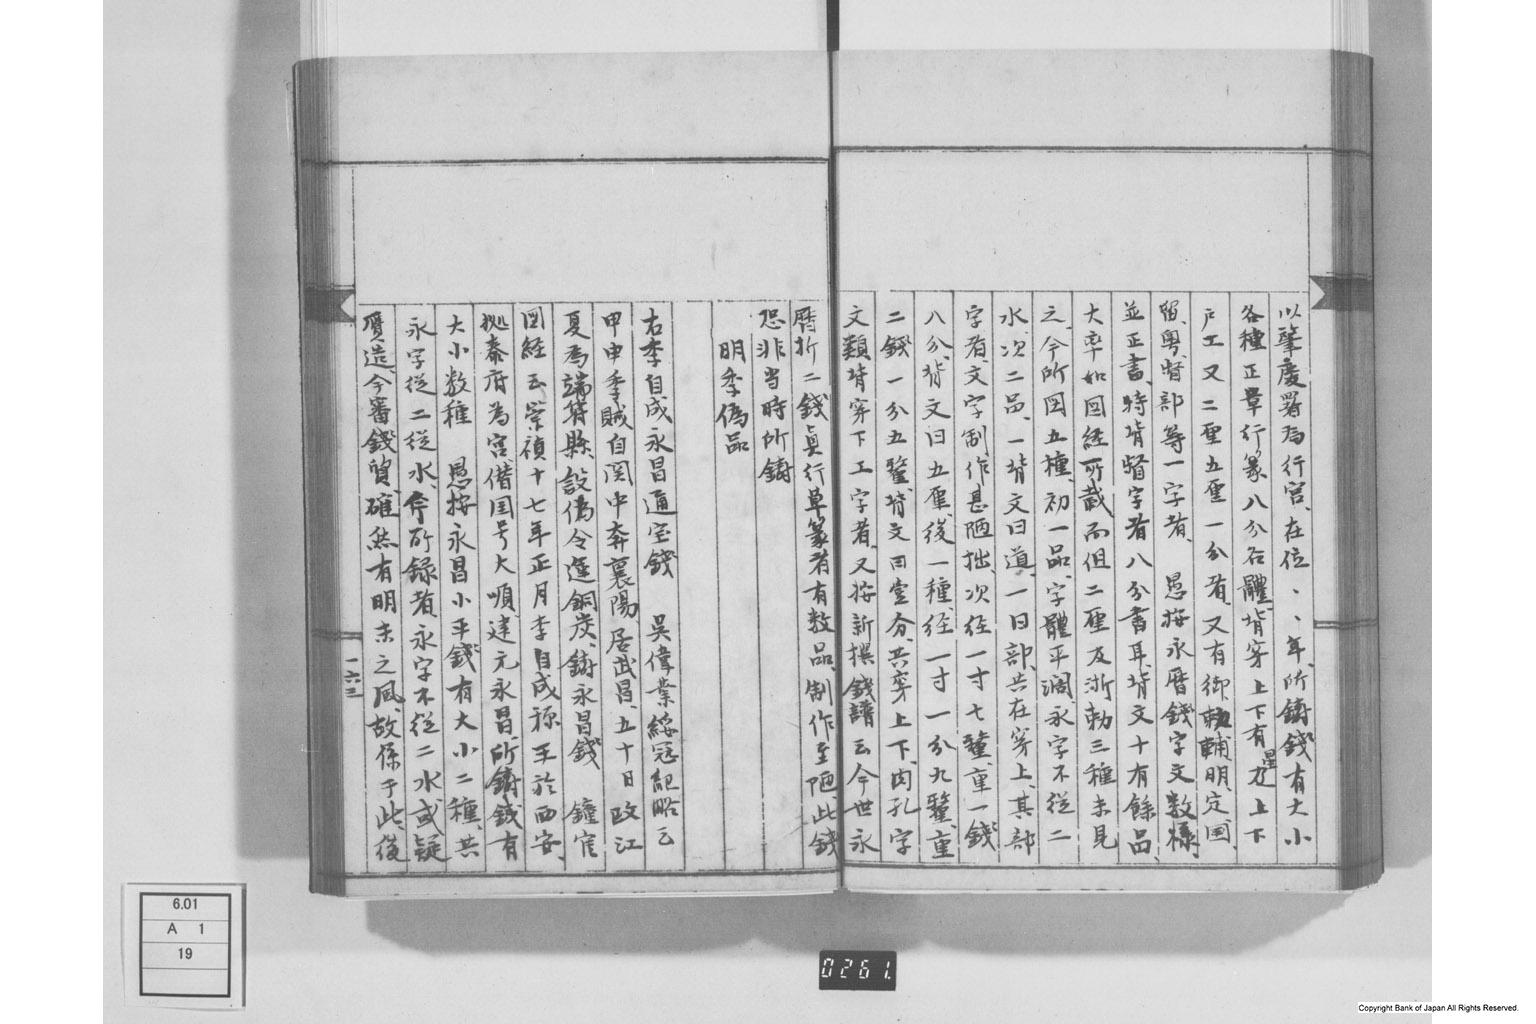 以肇慶署為行宮、在位、、年、所鋳錢有大小
各種正草行篆八分石體、背穿上下有星及上下
戶工又二厘五厘一分者、又有御勅輔明定國、
留粤督部等一字者、 愚按永曆錢字文数樣、
並正書、特背督字者八分書耳、背文十有餘品、
大率如図経所載、而但二厘及浙勅三種未見
之、今所図五種、初一品、字體平濶、永字不從二
水、次二品、一背文曰道、一曰部、共在穿上、其部
字者、文字制作甚陋拙、次径一寸七釐、重一錢
八分、背文曰五厘、後一種、径一寸一分九釐、重
二錢一分五釐、背文曰壹分、共穿上下、肉孔字
文類背穿下工字者、又按新撰錢譜云今世永
曆折二錢眞行草篆者有数品、制作至陋、此錢
恐非当時所鋳
明季偽品
右李自成永昌通宝錢 吳偉業綏冦紀略云
甲申季賊自関中奔襄陽、居武昌、五十日改江
夏為端符縣、設偽令運銅炭、鋳永昌錢 鐘官
図経云崇禎十七年正月李自成称王於西安、
拠秦府為宮僣国号大順、建元永昌、所鋳錢有
大小数種 愚按永昌小平錢有大小二種、共
永字從二從水、所録者、永字不從二水或疑
贋造、今審錢質、確然有明末之風、故係于此、後
一六三
6.01
A 1
19
0261.
Copyright Bank of Japan All Rights Reserved.